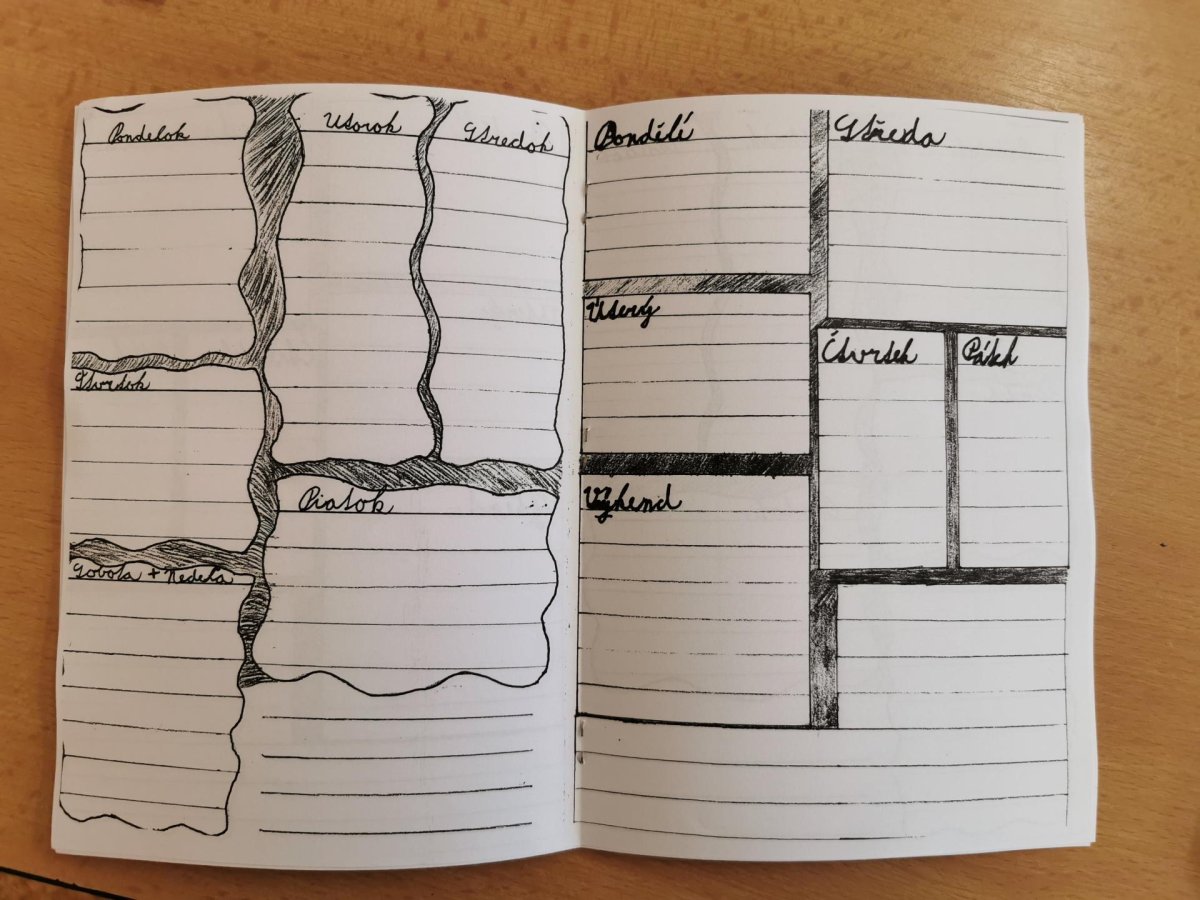 Pondelok
Utorok
Stredok
Štvrtok
Piatok
Sobota + Nedeľa
Pondělí
Středa
Úterý
Čtvrtek
Pátek
Výkend